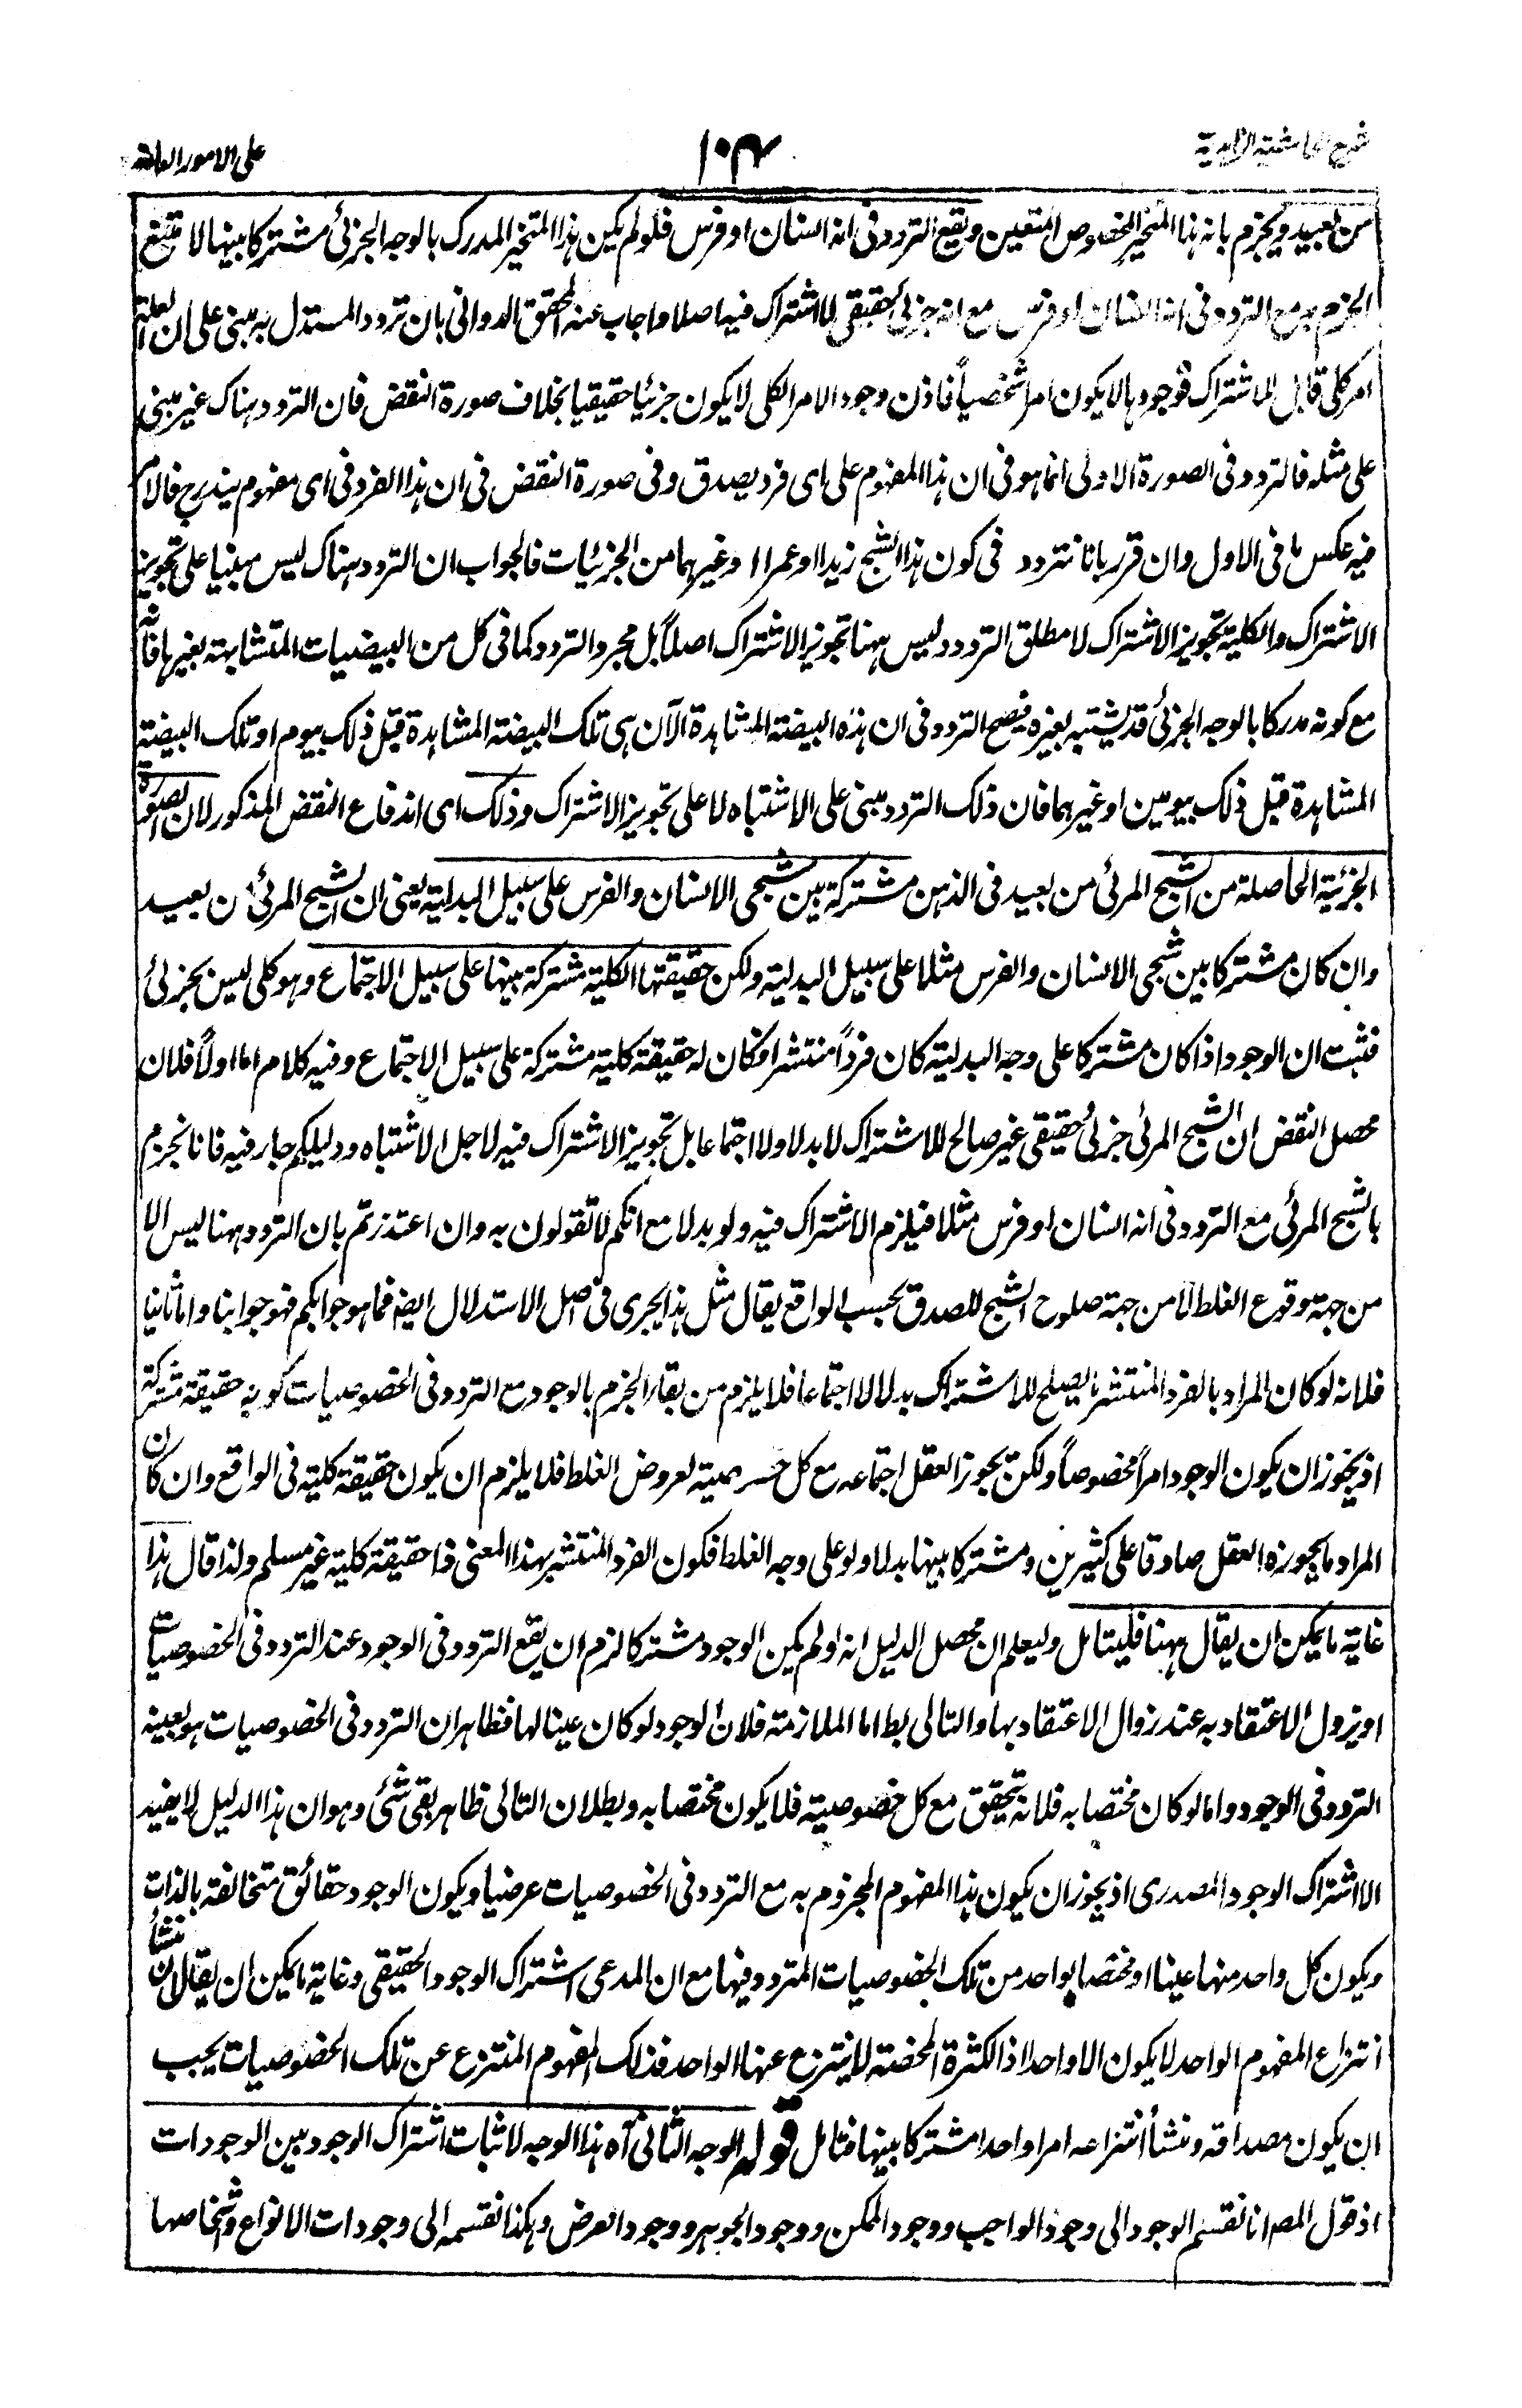 شرح حاشية الزاهدية
۱۰۴
على الامور العامه
من بعيد ويجزم بانه هذا المتحيز المخصوص المتعين ويقع التردد فى انه انسان او فرس فلو لم يكن هذا المتحيز المدرك بالوجه الجزئى مشتركا بينها لامتنع
الجزم به مع التردد فى انه انسان او فرس مع انه جزئى حقيقى لا اشتراك فيه اصلا واجاب عنه المحقق الدوانى بان تردد المستدل به مبنى على ان العلة
امر كلى قابل للاشتراك فوجودها لا يكون امرا شخصياً فاذن وجود الامر الكلى لا يكون جزئيا حقيقيا بخلاف صورة النقض فان التردد هناك غير مبنى
على مثله فالتردد فى الصورة الاولى انما هو فى ان هذا المفهوم على اى فرد يصدق وفى صورة النقض فى ان هذا الفرد فى اى مفهوم يندرج فالامر
فيه عكس ما فى الاول وان قرر بانا نتردد فى كون هذا الشبح زيدا او عمرا او غيرهما من الجزئيات فالجواب ان التردد هناك ليس مبنيا على تجويز
الاشتراك والكلية تجويز الاشتراك لا مطلق التردد وليس ههنا تجويز الاشتراك اصلاً بل مجرد التردد كما فى كل من البيضيات المتشابهة بغيرها فانه
مع كونه مدركا بالوجه الجزئى قد يشتبه بغيره فيصح التردد فى ان هذه البيضة المشاهدة الآن هى تلك البيضة المشاهدة قبل ذلك بيوم او تلك البيضة
المشاهدة قبل ذلك بيومين او غيرهما فان ذلك التردد مبنى على الاشتباه لا على تجويز الاشتراك وذلك اى اندفاع النقض المذكور لان الصورة
الجزئية الحاصلة من الشبح المرئى من بعيد فى الذهن مشتركة بين شبحى الانسان والفرس على سبيل البدلية يعنى ان الشبح المرئى من بعيد
وان كان مشتركا بين شبحى الانسان والفرس مثلا على سبيل البدلية ولكن حقيقتها الكلية مشتركة بينها على سبيل الاجتماع وهو كلى ليس بجزئى
فثبت ان الوجود اذا كان مشتركا على وجه البدلية كان فرداً منتشرا فكان له حقيقة كلية مشتركة على سبيل الاجتماع وفيه كلام اما اولاً فلان
محصل النقض ان الشبح المرئى جزئى حقيقى غير صالح للاشتراك لا بدلا ولا اجتماعا بل تجويز الاشتراك فيه لاجل الاشتباه ودليلكم جار فيه فانا نجزم
بالشبح المرئى مع التردد فى انه انسان او فرس مثلا فيلزم الاشتراك فيه ولو بدلا مع انكم لا تقولون به وان اعتذرتم بان التردد ههنا ليس الا
من جهة وقوع الغلط لا من جهة صلوح الشبح للصدق بحسب الواقع يقال مثل هذا يجرى فى اصل الاستدلال ايضا فما هو جوابكم فهو جوابنا واما ثانيا
فلانه لو كان المراد بالفرد المنتشر ما يصلح للاشتراك بدلا لا اجتماعا فلا يلزم من بقاء الجزم بالوجود مع التردد فى الخصوصيات كونه حقيقة مشتركة
اذ يجوز ان يكون الوجود امراً مخصوصاً ولكن يجوز العقل اجتماعه مع كل خصوصية لعروض الغلط فلا يلزم ان يكون حقيقة كلية فى الواقع وان كان
المراد ما يجوزه العقل صادقا على كثيرين ومشتركا بينها بدلا ولو على وجه الغلط فكون الفرد المنتشر بهذا المعنى ذا حقيقة كلية غير مسلم ولذا قال هذا
غاية ما يمكن ان يقال ههنا فليتامل وليعلم ان محصل الدليل انه لو لم يكن الوجود مشتركا لزم ان يقع التردد فى الوجود عند التردد فى الخصوصيات
او يزول الاعتقاد به عند زوال الاعتقاد بها والتالى بط اما الملازمة فلان الوجود لو كان عينا لها فظاهر ان التردد فى الخصوصيات هو بعينه
التردد فى الوجود واما لو كان مختصا به فلانه يتحقق مع كل خصوصية فلا يكون مختصا به وبطلان التالى ظاهر بقى شئ وهو ان هذا الدليل لا يفيد
الا اشتراك الوجود المصدرى اذ يجوز ان يكون هذا المفهوم المجزوم به مع التردد فى الخصوصيات عرضيا ويكون الوجود حقائق متخالفة بالذات
ويكون كل واحد منها عينا او مختصا بواحد من تلك الخصوصيات المتردد فيها مع ان المدعى اشتراك الوجود الحقيقى وغاية ما يمكن ان يقال ان منشأ
انتزاع المفهوم الواحد لا يكون الا واحدا اذ الكثرة المحضة لا ينتزع عنها الواحد فذلك المفهوم المنتزع عن تلك الخصوصيات يجب
ان يكون مصداقه ومنشأ انتزاعه امرا واحدا مشتركا بينها فتامل قوله الوجه الثانى آه هذا الوجه لاثبات اشتراك الوجود بين الوجودات
اذ قول المصـ انا نقسم الوجود الى وجود الواجب ووجود الممكن ووجود الجوهر ووجود العرض وهكذا نقسمه الى وجودات الانواع واشخاصها